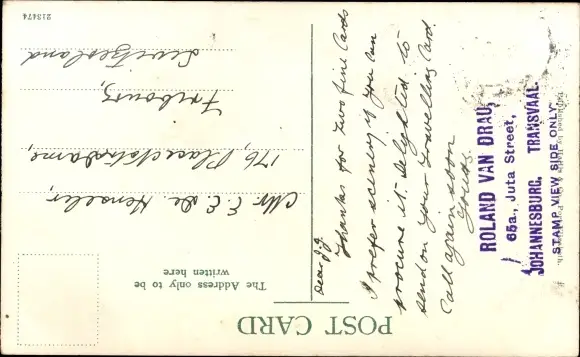 POST CARD
The Address only to be
written here
Dear J.J.
Thanks for two fine Cards
I prefer scenery if you can
procure it. Delighted to
send on your Travelling Card.
Call again soon
Yours
ROLAND VAN DRAU,
65a., Juta Street,
JOHANNESBURG. TRANSVAAL.
STAMP VIEW SIDE ONLY
Mr E. E. De. Henseler,
176, Place Notre Dame,
Fribourg,
Switzerland
213474